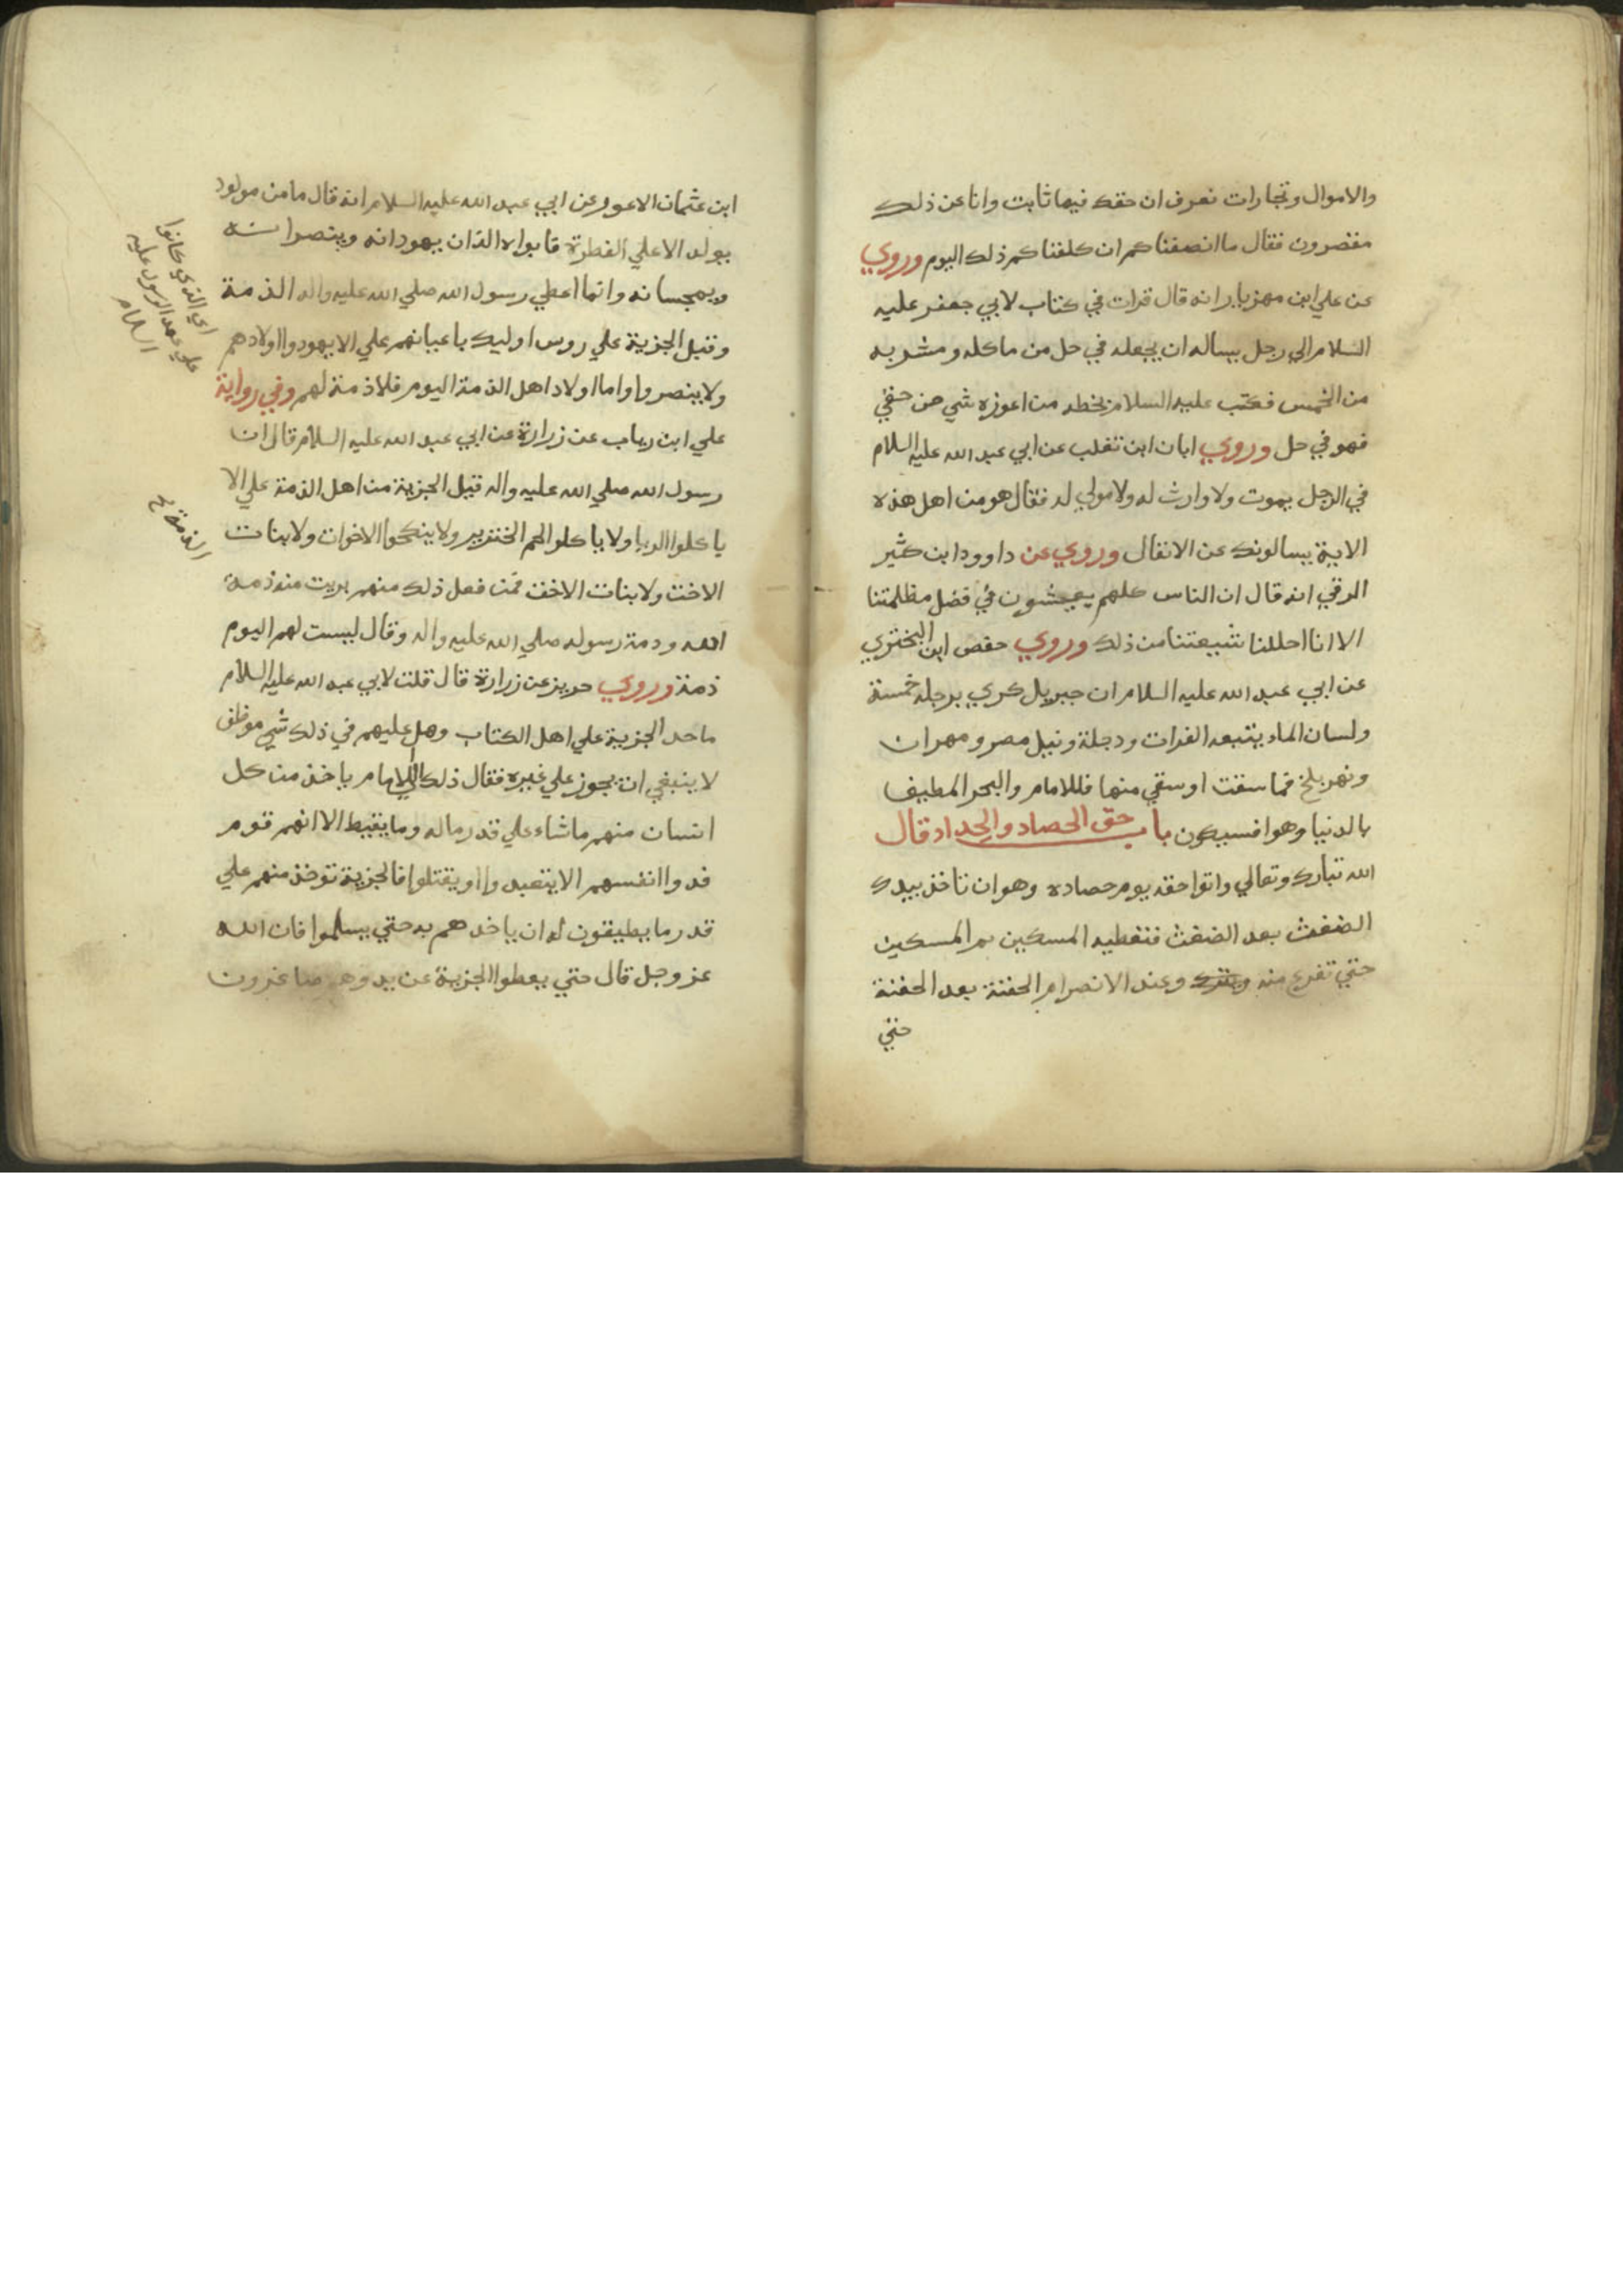 والاموال وتجارات نعرف ان حقك فيها ثابت وانا عن ذلك
مقصرون فقال ما انصفناكم ان كلفناكم ذلك اليوم وروي
عن علي ابن مهزيار انه قال قرات في كتاب لابي جعفر عليه
السلام الي رجل يساله ان يجعله في حل من ماكله ومشربه
من الخمس فكتب عليه السلام بخطه من اعوزه شي من حقي
فهو في حل وروي ابان ابن تغلب عن ابي عبد الله عليه السلام
في الرجل يموت ولا وارث له ولا مولي له فقال هو من اهل هذه
الاية يسالونك عن الانفال وروي عن داوود ابن كثير
الرقي انه قال ان الناس كلهم يعيشون في فضل مظلمتنا
الا انا احللنا شيعتنا من ذلك وروي حفص ابن البختري
عن ابي عبد الله عليه السلام ان جبريل كري برجله خمسة
ولسان الماء يتبعه الفرات ودجلة ونيل مصر ومهران
ونهر بلخ فما سقت او سقي منها فللامام والبحر المطيف
بالدنيا وهو افسيكون باب حق الحصاد والجداد قال
الله تبارك وتعالي واتوا حقه يوم حصاده وهو ان تاخذ بيدك
الضغث بعد الضغث فتعطيه المسكين ثم المسكين
حتي تفرغ منه وعند الانصرام الحفنة بعد الحفنة
حتي
ابن عثمان الاعور عن ابي عبد الله عليه السلام انه قال ما من مولود
يولد الا علي الفطرة فابواه الذان يهودانه وينصرانه
ويمجسانه وانما اعطي رسول الله صلي الله عليه واله الذمة
وقبل الجزية علي روس اوليك باعيانهم علي الا يهودوا اولادهم
ولا ينصروا واما اولاد اهل الذمة اليوم فلا ذمة لهم وفي رواية
علي ابن رياب عن زرارة عن ابي عبد الله عليه السلام قال ان
رسول الله صلي الله عليه واله قبل الجزية من اهل الذمة علي الا
ياكلوا الربا ولا ياكلوا لحم الخنزير ولا ينكحوا الاخوات ولا بنات
الاخت ولا بنات الاخت فمن فعل ذلك منهم بريت منه ذمة
الله وذمة رسوله صلي الله عليه واله وقال ليست لهم اليوم
ذمة وروي حريز عن زرارة قال قلت لابي عبد الله عليه السلام
ما حد الجزية علي اهل الكتاب وهل عليهم في ذلك شي موظف
لا ينبغي ان يجوز علي غيره فقال ذلك الي الامام ياخذ من كل
انسان منهم ما شاء علي قدر ماله وما يقيط الا انهم قوم
فدوا انفسهم الا يتعبدوا او يقتلوا فالجزية توخذ منهم علي
قدر ما يطيقون له ان ياخذهم به حتي يسلموا فان الله
عز وجل قال حتي يعطوا الجزية عن يد وهم صاغرون
اي الذي كانوا
علي عهد الرسول عليه
السلام
الذمة